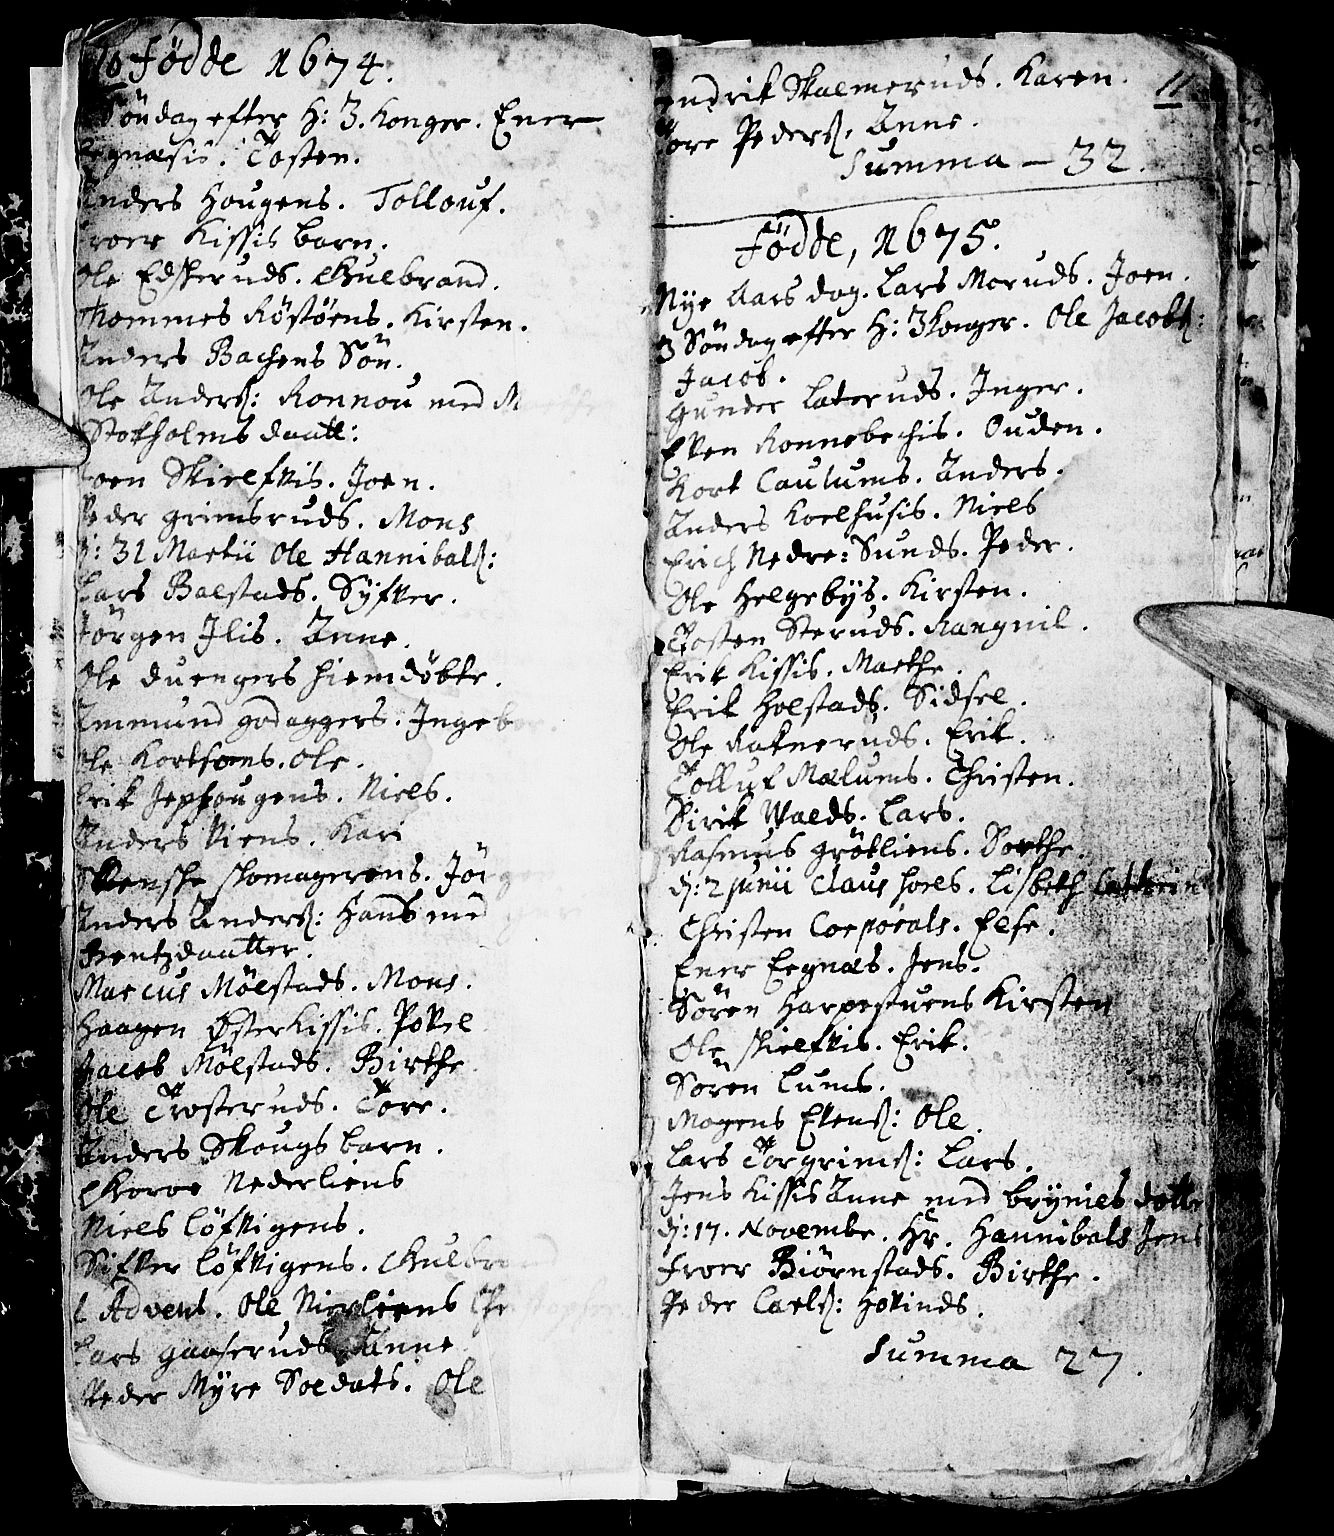 10 Födde 1674.
Söndag efter H: 3. Konger. Ener
Tosten.
Anders Hougens. Tollouf.
Froer Kissis barn.
Ole Edskeruds. Gulbrand.
Thommes Röstöens. Kirsten.
Anders Bachens Sön.
Ole Anders: Ronnou med
Stokholms daatt:
Joen Skielfvis. Joen.
Peder Grimsruds. Mons
d: 31 Martii Ole Hannibals:
Lars Balstads. Syfver.
Jörgen Ilis. Anne.
Ole duengers hiemdöbte.
Ammund godaggers. Ingebor
Ole Kortsöens. Ole.
Erik Jephougens. Niels.
Anders Viens. Kari
Svenske skomagerens. Jörgen
Anders Anders: Hans med
Bentzdaatter.
Marcus Mölstads. Mons.
Haagen Østerkissis. Povel
Jacob Mölstads. Birthe
Ole Trosteruds. Tore.
Anders Skougs barn.
Nederliens
Niels Löfvigens.
Sifver Löfvigens. Gulbrand
1 Advent. Ole Nierliens Christopher
Lars gaaseruds. Anne
Peder Myre Soldats. Ole
11
endrik Skalmeruds. Karen.
Tore Peders. Anne.
Summa – 32.
Födde, 1675.
Nye Aars dag. Lars Moruds. Joen.
3 Söndag efter H: 3 Konger. Ole Jacobs:
Jacob.
Gunder Lateruds. Inger.
Even Ronnebechis. Ouden.
Kort Caulums. Anders.
Anders Koelhusis. Niels
Erich Nedre: Sunds. Peder.
Ole Helgebys. Kirsten.
Tosten Steruds. Rangnil.
Erik Kissis. Marthe.
Erik Holstads. Sidsel.
Ole Rakneruds. Erik.
Tolluf Mælums. Christen.
Sirik Walds. Lars.
Rasmus Grötliens. Dorthe.
d: 2 Junii Claus Lisbeth
Christen Corporals. Else.
Ener Eegnæs. Jens.
Sören Harpestuens Kirsten
Ole Skielfvis. Erik.
Sören Lums.
Mogens Evens: Ole.
Lars Torgrims: Lars.
Jens Kissis Anne med Bryniels dotte
d: 17. Novembr. Hr. Hannibals Jens
Froer Biörnstads. Birthe.
Peder Carls: Hovinds.
Summa 27.